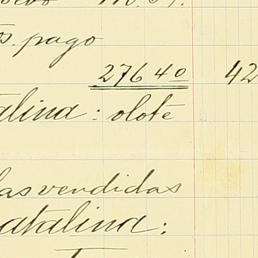 s. pago
276 40 42
alina: olote
las vendidas
atalina: